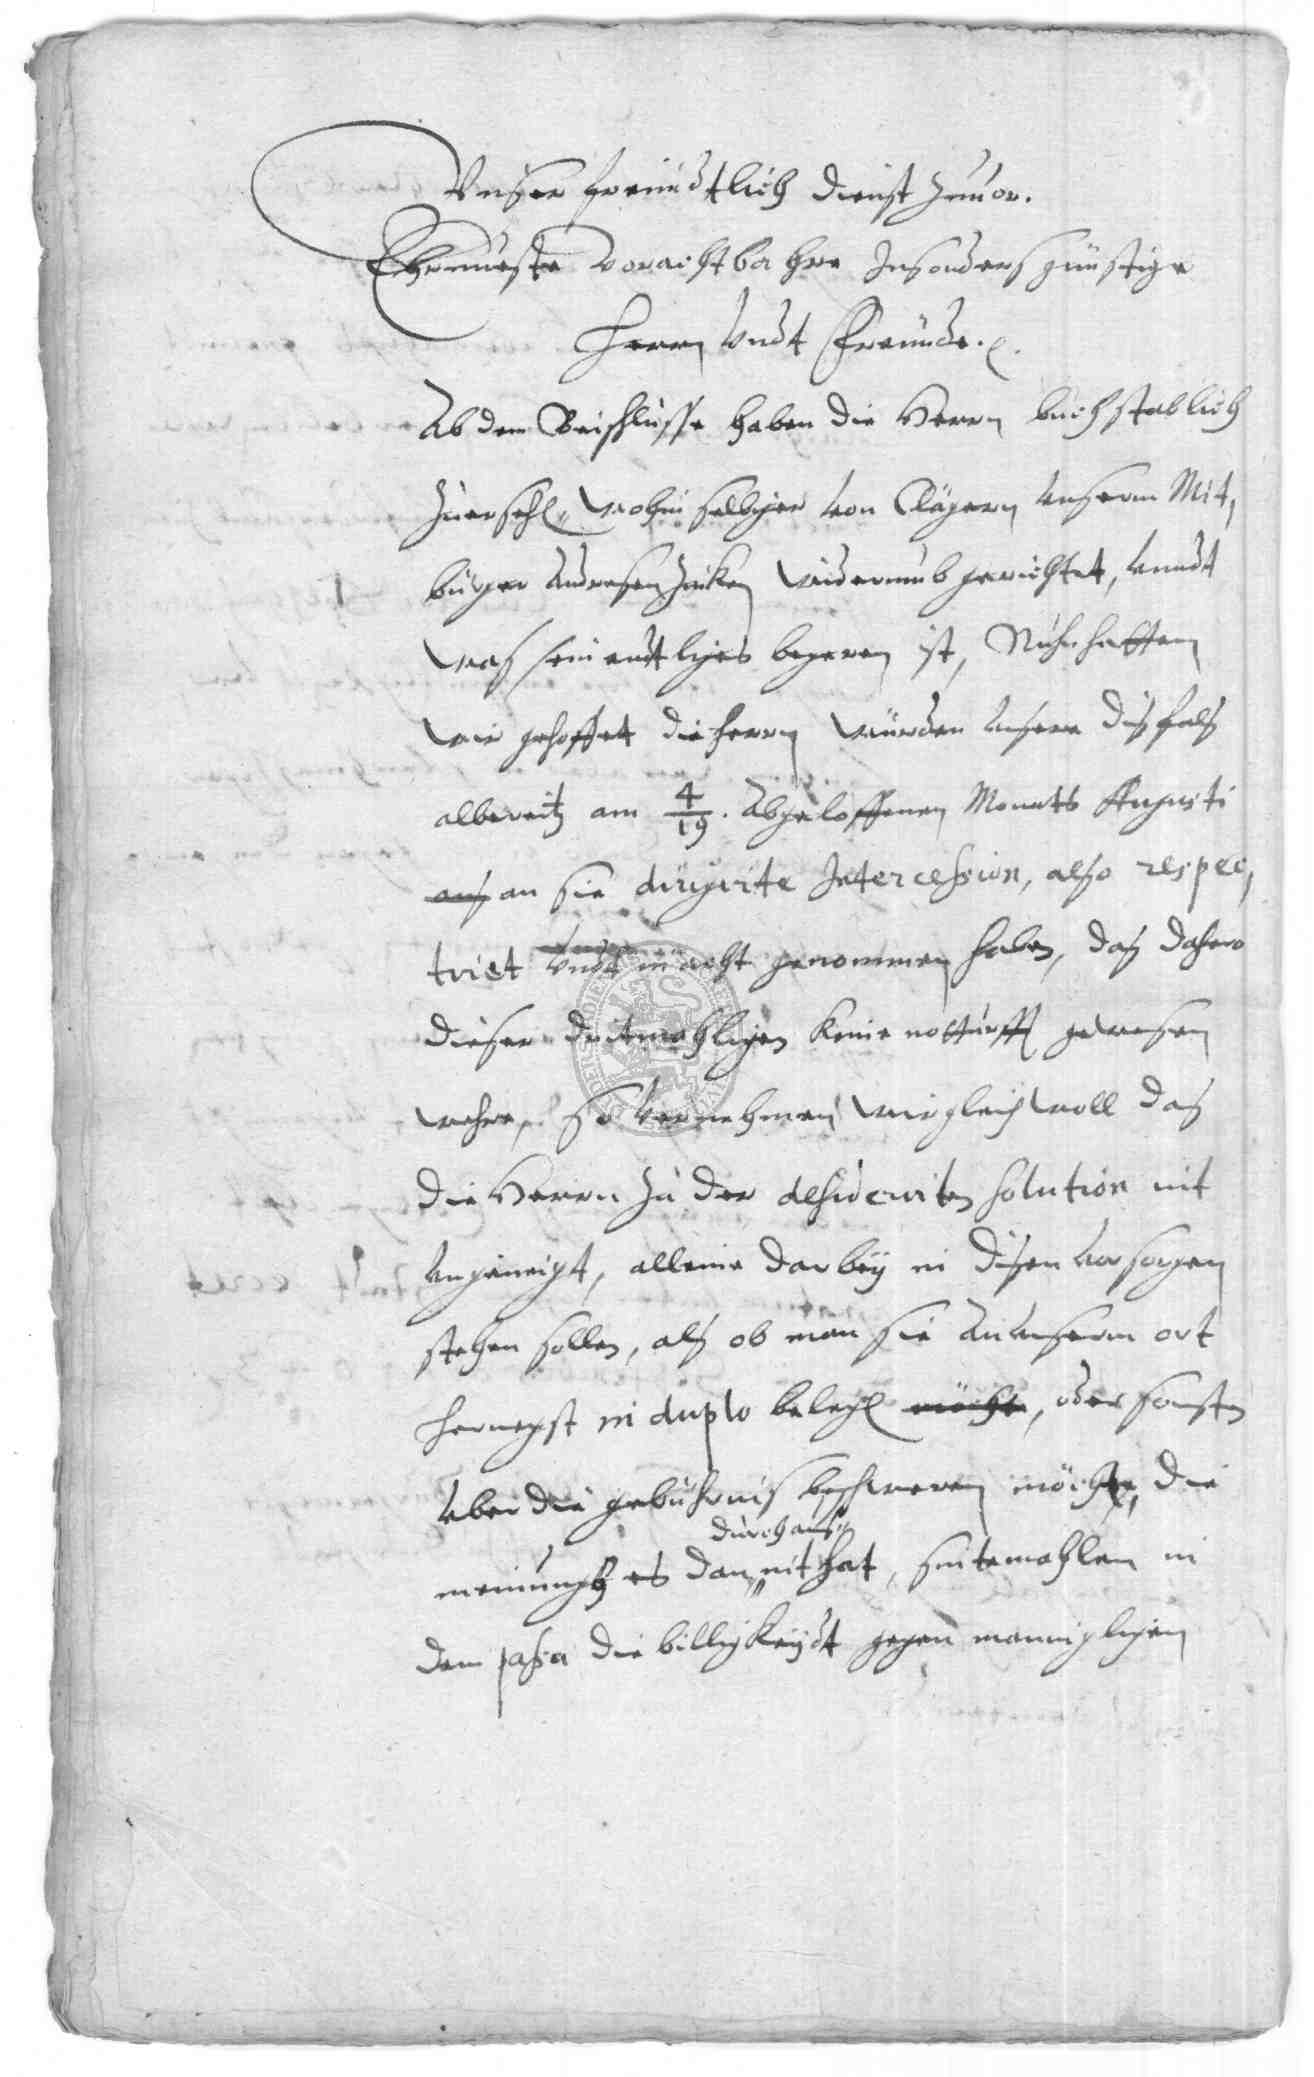 Unser freundtlich dienst zuuor.
Ehrnueste vorachtbahre Insonders günstige
Herrn Undt Freunde.
Ab dem Beischlusse haben die Herrn buchstablich
zuersehen, wohin selbiger von Clägern unserm Mit,
bürger Andresen widerumb gerichtet, vnndt
was sein entliges begeren ist, Nuhn hetten
wir gehoffet die herrn würden unsere disfals
albereitz am 4/19. Abgeloffenen Monats Augusti
an sie dirigirte Intercession, also respec,
tiret undt in acht genommen haben, das dahero
dieser dritmahligen keine notturfft gewesen
wehre, So vernehmen wir gleichwoll das
die Herrn zu der desiderirten solution nit
ungeneigt, alleine darbey in disen vorsorgen
stehen sollen, als ob man sie an unserm ort
hernegst in duplo belegen, oder sonsten
uber die gebührnis beschweren möchte, die
meinungh es dan durchaus nit hat, sintemahlen in
dem passu die billigkeydt gegen mannigligen